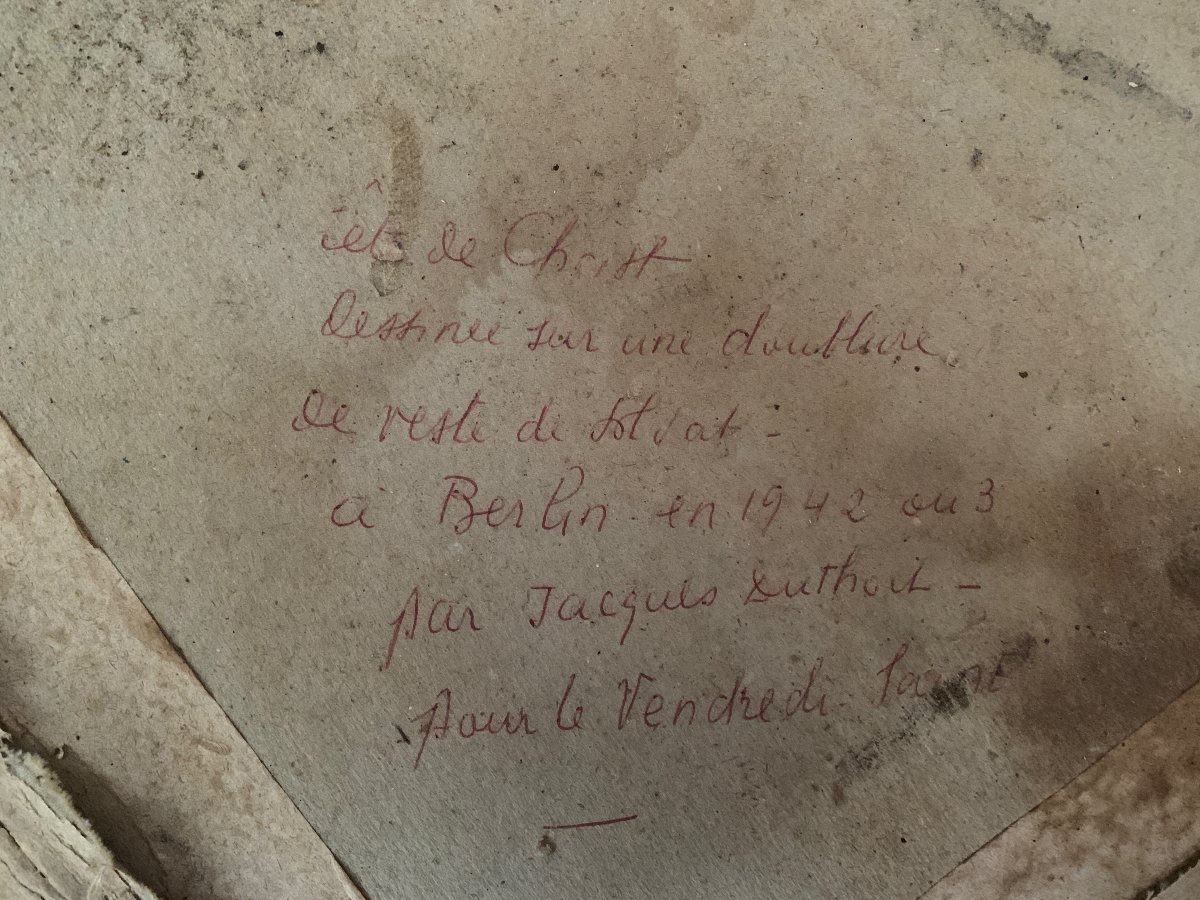 Tête de Christ
Dessinée sur une doublure
De veste de soldat -
à Berlin en 1942 ou 3
par Jacques Duthoit -
pour le Vendredi Saint